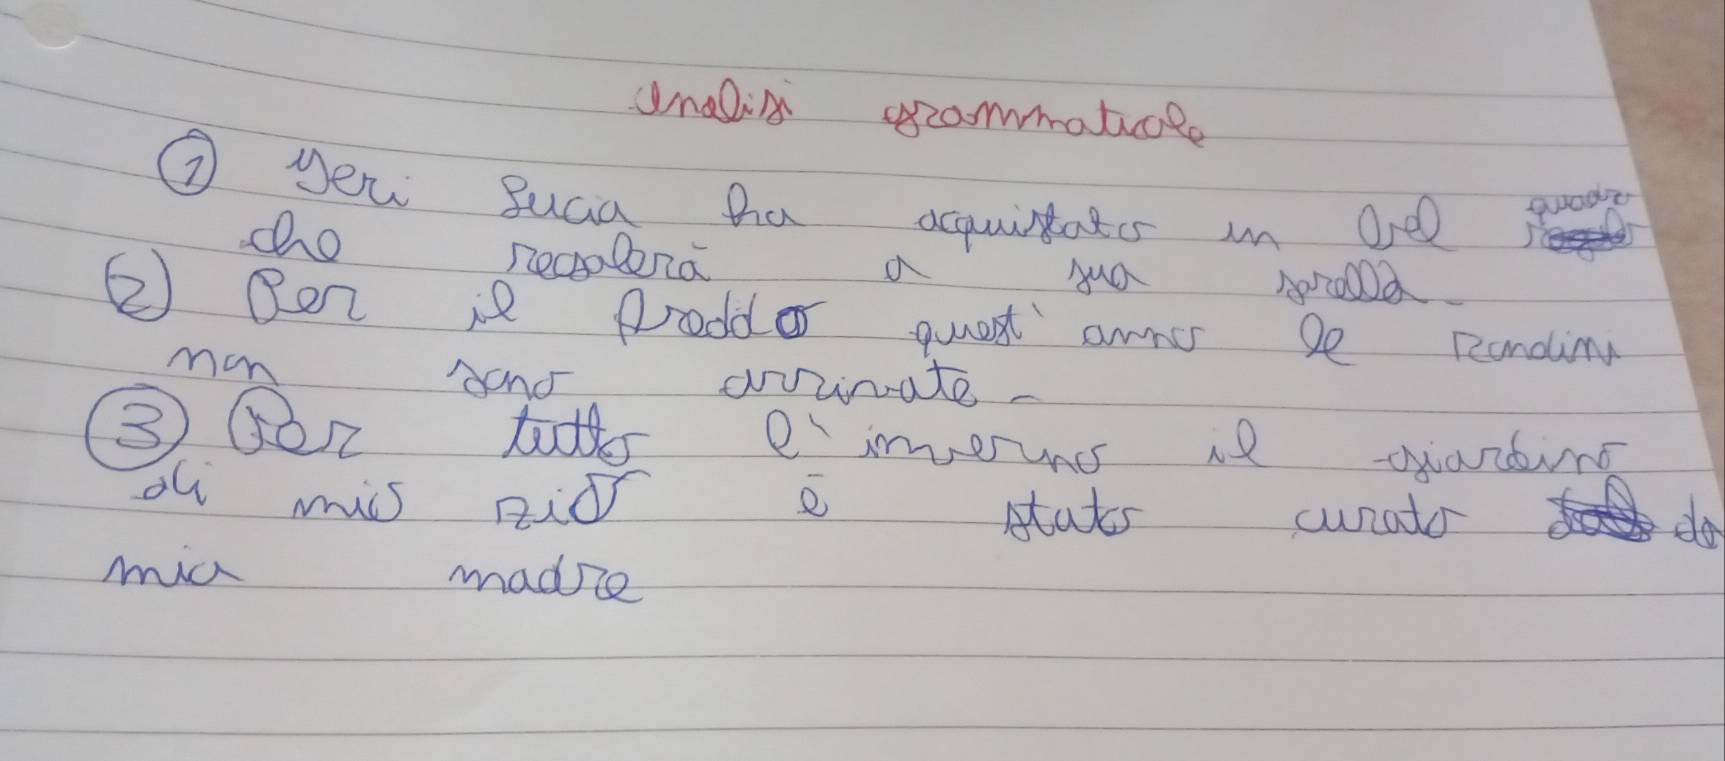 analisi grammaticale
① Ieri Lucia ha acquistato un bel quadro
che regalerà a sua sorella -
② Per il freddo quest' anno le rondini
non sono arrivate -
③ Per tutto l' inverno il giardino
di mio zio è stato curato da
mia madre